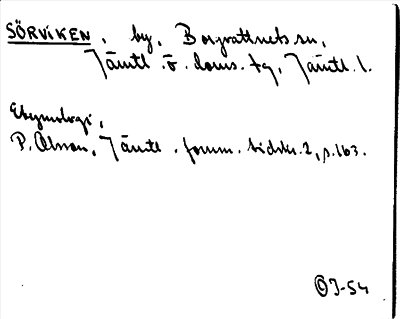 SÖRVIKEN, by, Borgvattnets sn,
Jämtl. ö. doms. tg, Jämtl. l.
Etymologi,
P. Olsson, Jämtl. fornm. tidskr. 2, s. 163.
OJ-54